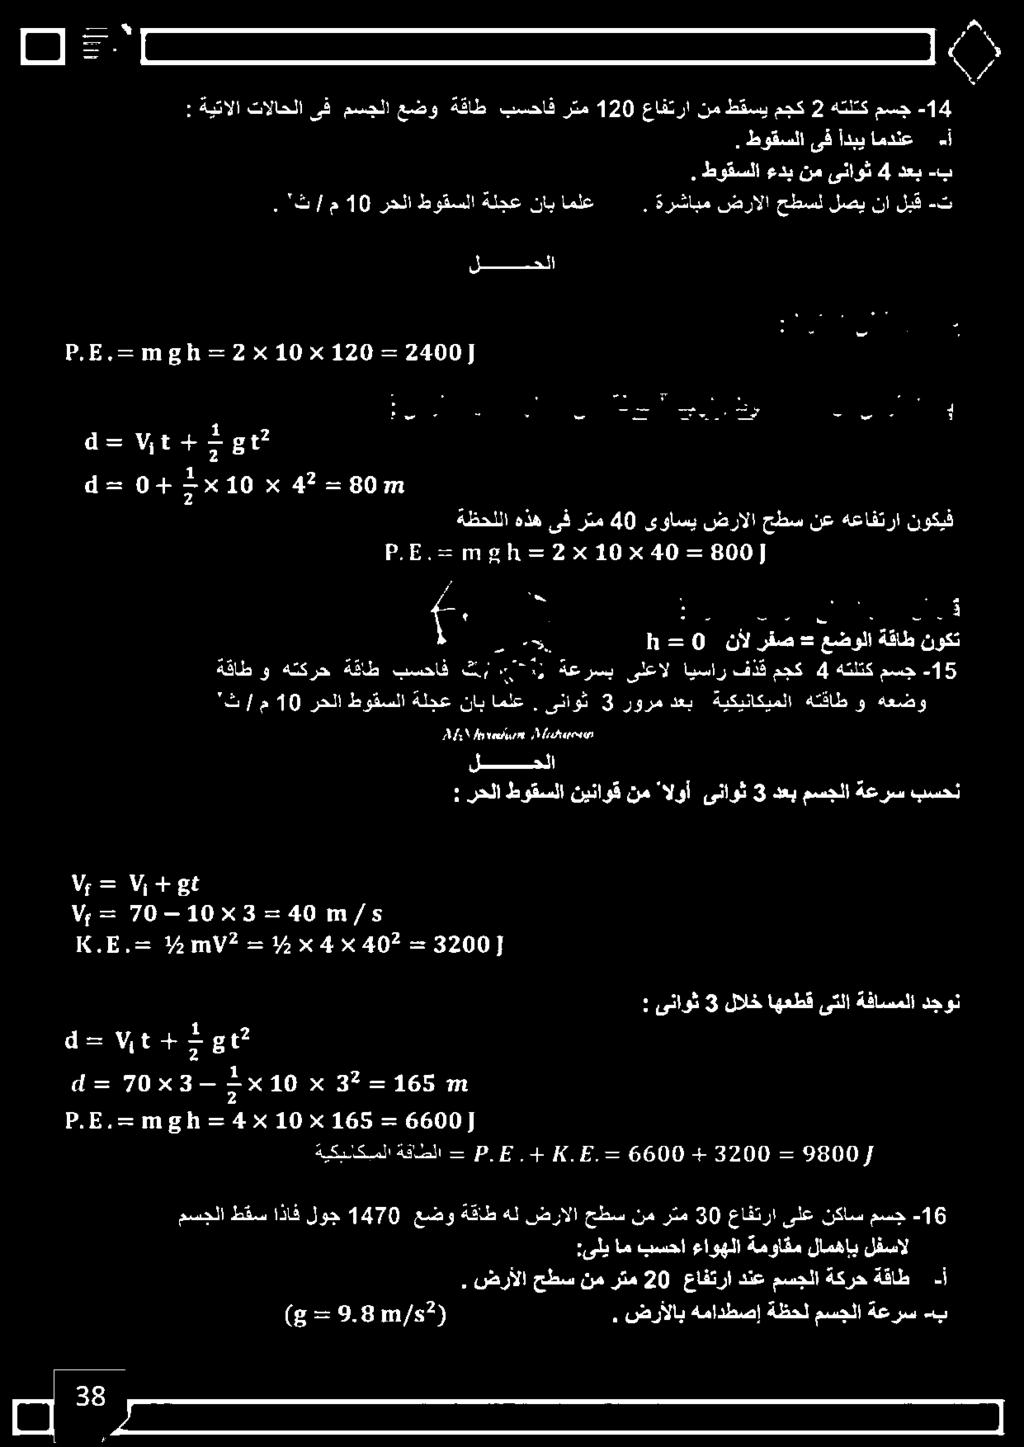 14- جسم كتلته 2 كجم يسقط من ارتفاع 120 متر فاحسب طاقة وضع الجسم فى الحالات الاتية :
أ- عندما يبدأ فى السقوط .
ب- بعد 4 ثوانى من بدء السقوط .
ت- قبل ان يصل لسطح الارض مباشرة . علما بان عجلة السقوط الحر 10 م / ث٢ .
الحــــــل
P.E.= m g h = 2 × 10 × 120 = 2400 J
d = Vi t + 1/2 g t²
d = 0 + 1/2 × 10 × 4² = 80 m
فيكون ارتفاعه عن سطح الارض يساوى 40 متر فى هذه اللحظة
P.E.= m g h = 2 × 10 × 40 = 800 J
تكون طاقة الوضع = صفر لأن h = 0
15- جسم كتلته 4 كجم قذف راسيا لاعلى بسرعة فاحسب طاقة حركته و طاقة
وضعه و طاقته الميكانيكية بعد مرور 3 ثوانى . علما بان عجلة السقوط الحر 10 م / ث٢
الحــــــل
نحسب سرعة الجسم بعد 3 ثوانى أولاً من قوانين السقوط الحر :
Vf = Vi + gt
Vf = 70 − 10 × 3 = 40 m / s
K.E.= ½ mV² = ½ × 4 × 40² = 3200 J
نوجد المسافة التى قطعها خلال 3 ثوانى :
d = Vi t + 1/2 g t²
d = 70 × 3 − 1/2 × 10 × 3² = 165 m
P.E.= m g h = 4 × 10 × 165 = 6600 J
الطاقة الميكانيكية = P.E.+ K.E.= 6600 + 3200 = 9800 J
16- جسم ساكن على ارتفاع 30 متر من سطح الارض له طاقة وضع 1470 جول فاذا سقط الجسم
لاسفل بإهمال مقاومة الهواء احسب ما يلى:
أ- طاقة حركة الجسم عند ارتفاع 20 متر من سطح الأرض .
ب- سرعة الجسم لحظة إصطدامه بالأرض . (g = 9.8 m/s²)
38